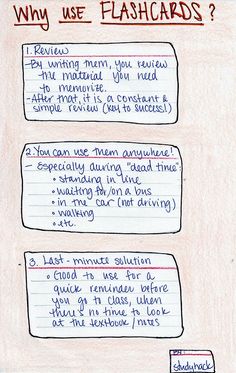 Why USE FLASHCARDS?
1. Review
-By writing them, you review
the material you need
to memorize.
-After that, it is a constant &
simple review (key to success!)
2. You can use them anywhere!
- Especially during "dead time":
• standing in line
• waiting for/on a bus
• in the car (not driving)
• walking
• etc.
3. Last-minute solution
• Good to use for a
quick reminder before
you go to class, when
there's no time to look
at the textbook/notes
BY:
studyhack